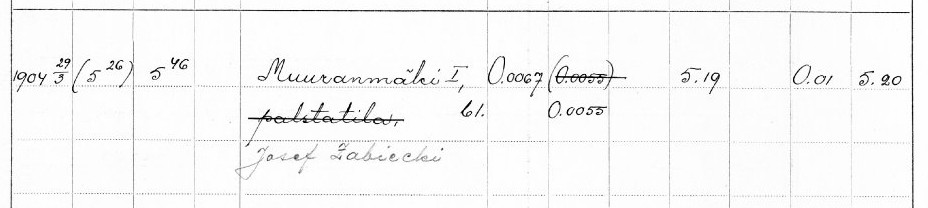 1904 29/3 (5 26) 5 46 Muuranmäki I, 0.0067 (0.0055) 5.19 0.01 5.20
palstatila, bl. 0.0055
Josef Żabiecki